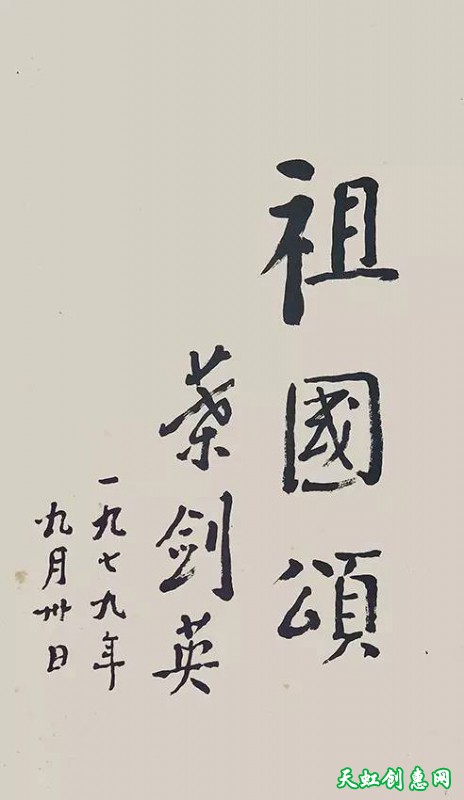 祖國頌
葉剑英
一九七九年
九月卅日
天虹创惠网